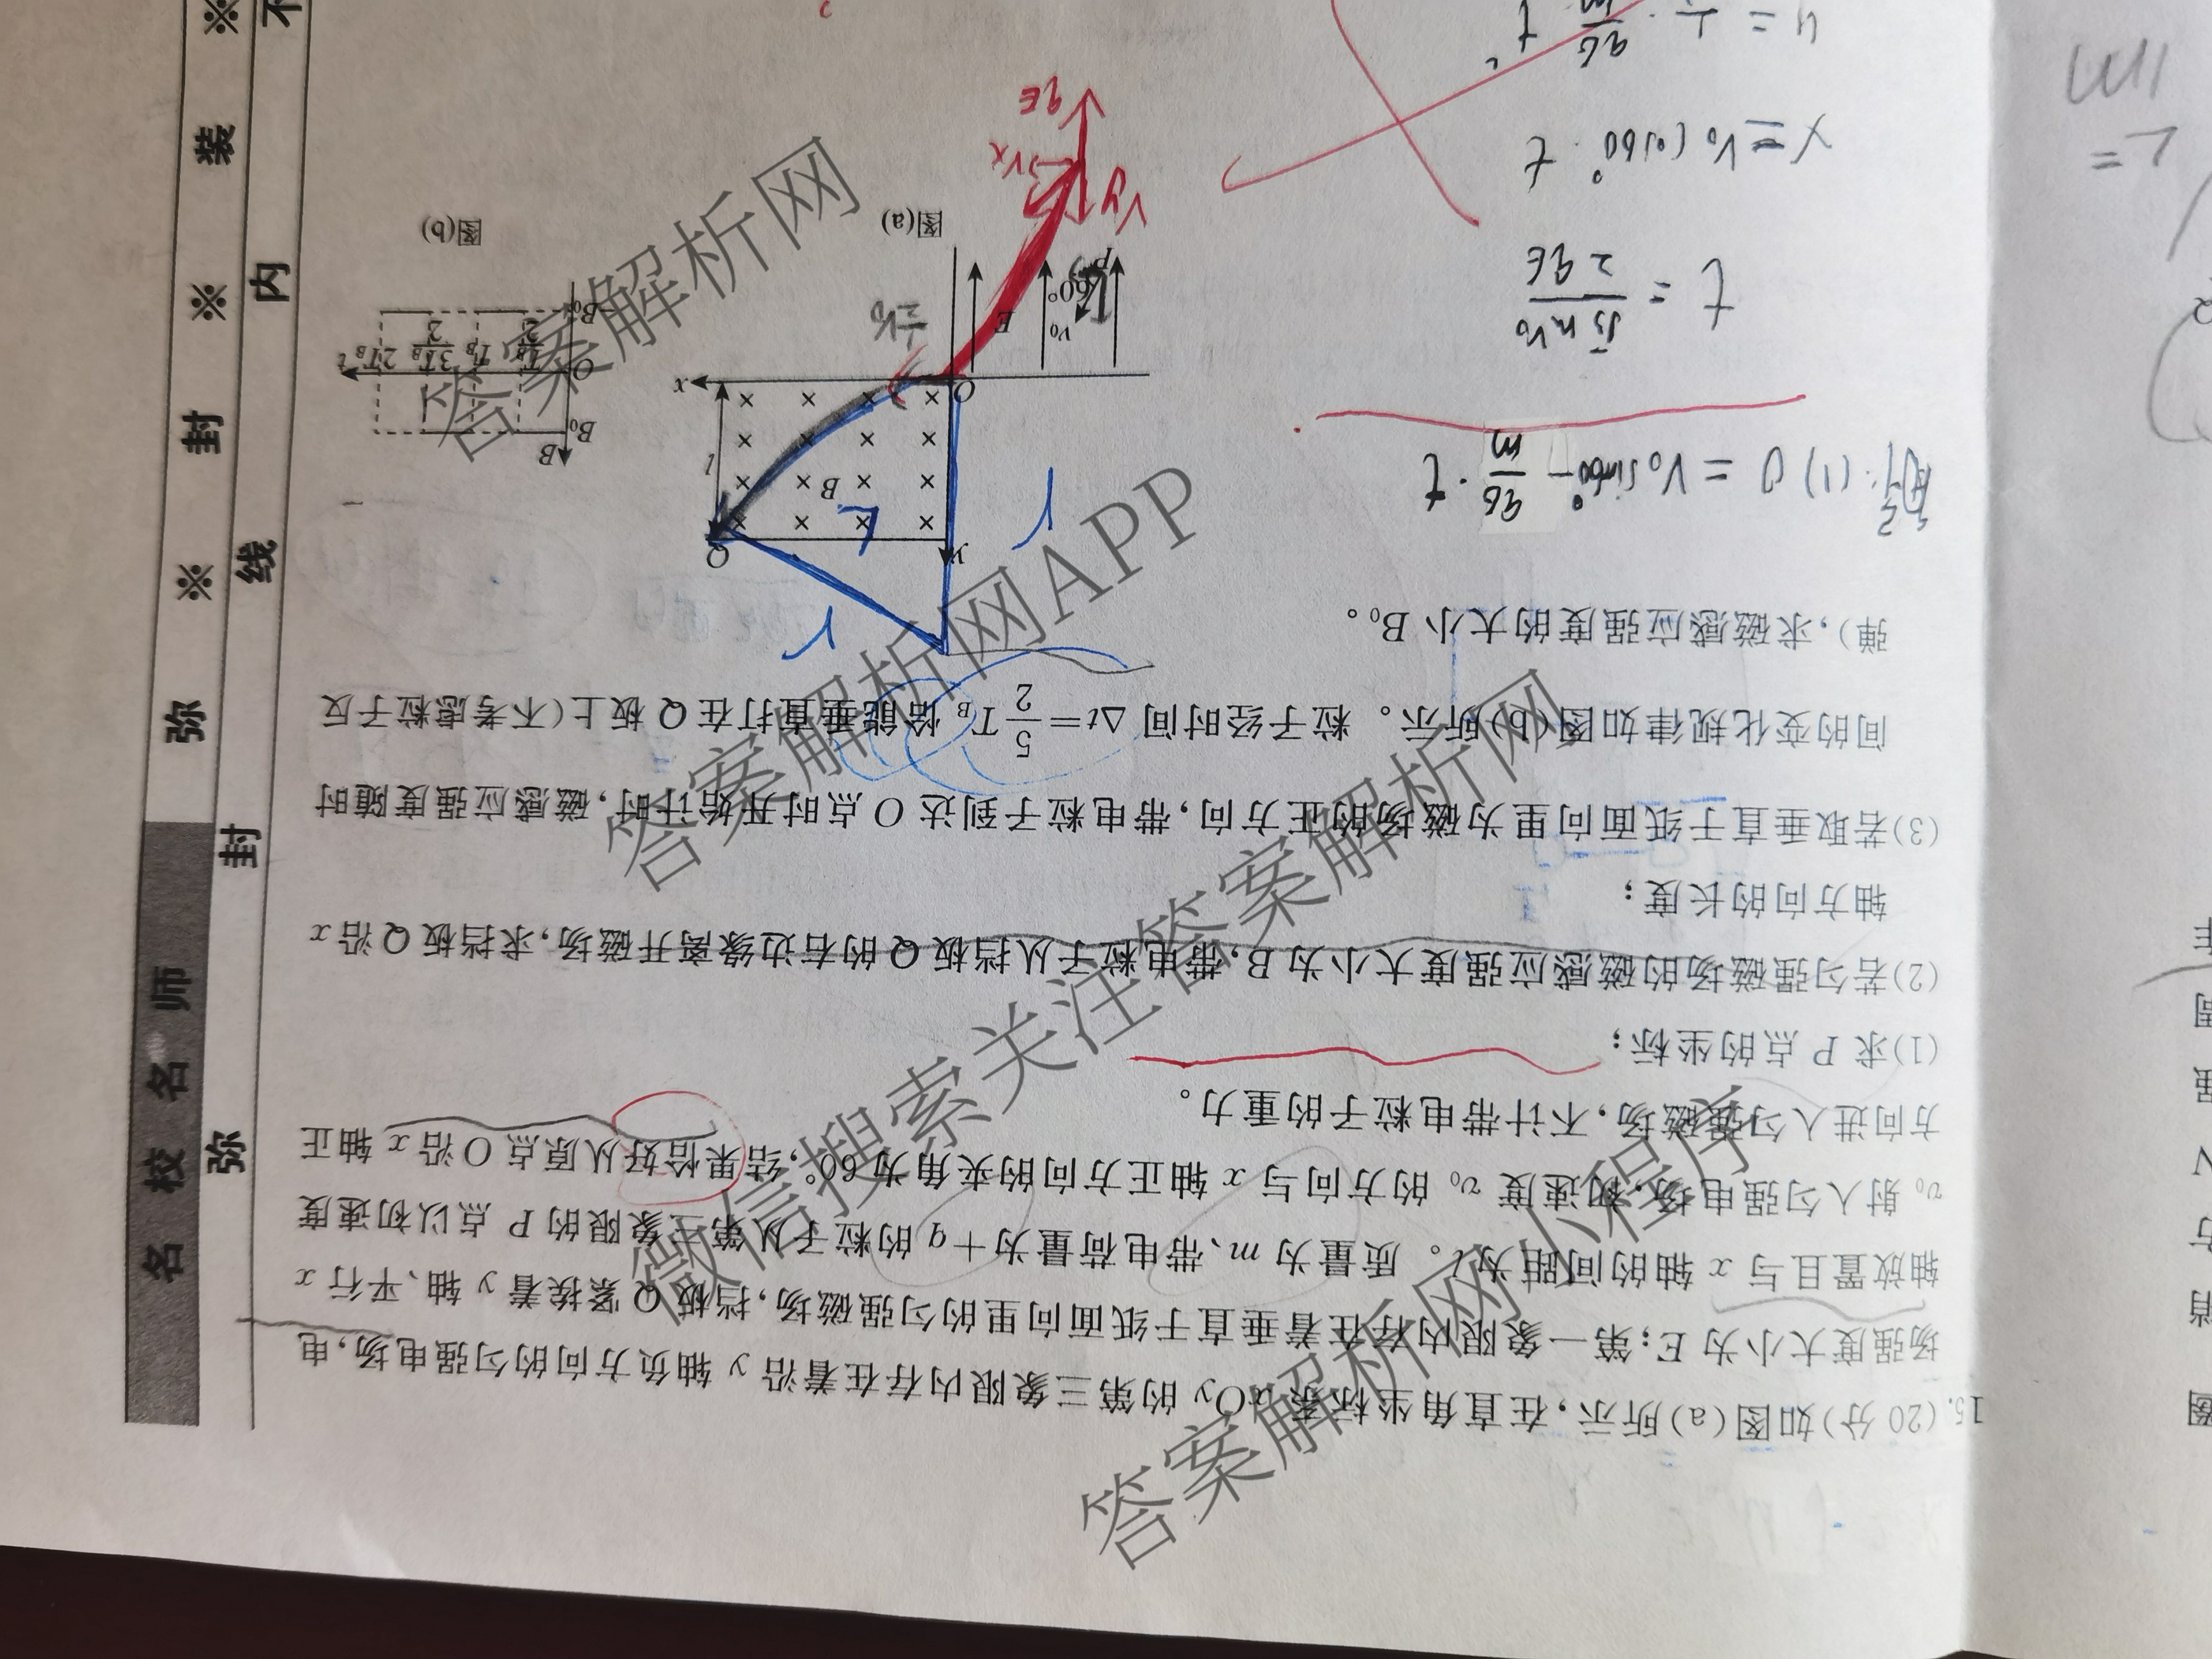 15.(20 分)如图(a)所示,在直角坐标系 xOy 的第三象限内存在着沿 y 轴负方向的匀强电场,电
场强度大小为 E;第一象限内存在着垂直于纸面向里的匀强磁场,挡板 Q 紧挨着 y 轴、平行 x
轴放置且与 x 轴的间距为 l。质量为 m、带电荷量为+q 的粒子从第三象限的 P 点以初速度
v₀ 射入匀强电场,初速度 v₀ 的方向与 x 轴正方向的夹角为 60°,结果恰好从原点 O 沿 x 轴正
方向进入匀强磁场,不计带电粒子的重力。
(1)求 P 点的坐标;
(2)若匀强磁场的磁感应强度大小为 B,带电粒子从挡板 Q 的右边缘离开磁场,求挡板 Q 沿 x
轴方向的长度;
(3)若取垂直于纸面向里为磁场的正方向,带电粒子到达 O 点时开始计时,磁感应强度随时
间的变化规律如图(b)所示。粒子经时间 Δt=5/2 T_B 恰能垂直打在 Q 板上(不考虑粒子反
弹),求磁感应强度的大小 B₀。
r
r
y
Q
L
B
l
O
x
E
v₀
60°
P
½v₀
图(a)
Vy
Vx
qE
B
B₀
O
T_B/2 T_B 3T_B/2 2T_B t
-B₀
图(b)
解:(1) 0 = V₀ sin60° - qE/m · t
t = √3 m v₀ / 2qE
x = V₀ cos60° · t
名校名师
弥 封 线 内 不
弥 ※ ※ 封 ※ 装 ※
微信搜索关注答案解析网
答案解析网小程序
答案解析网APP
答案解析网